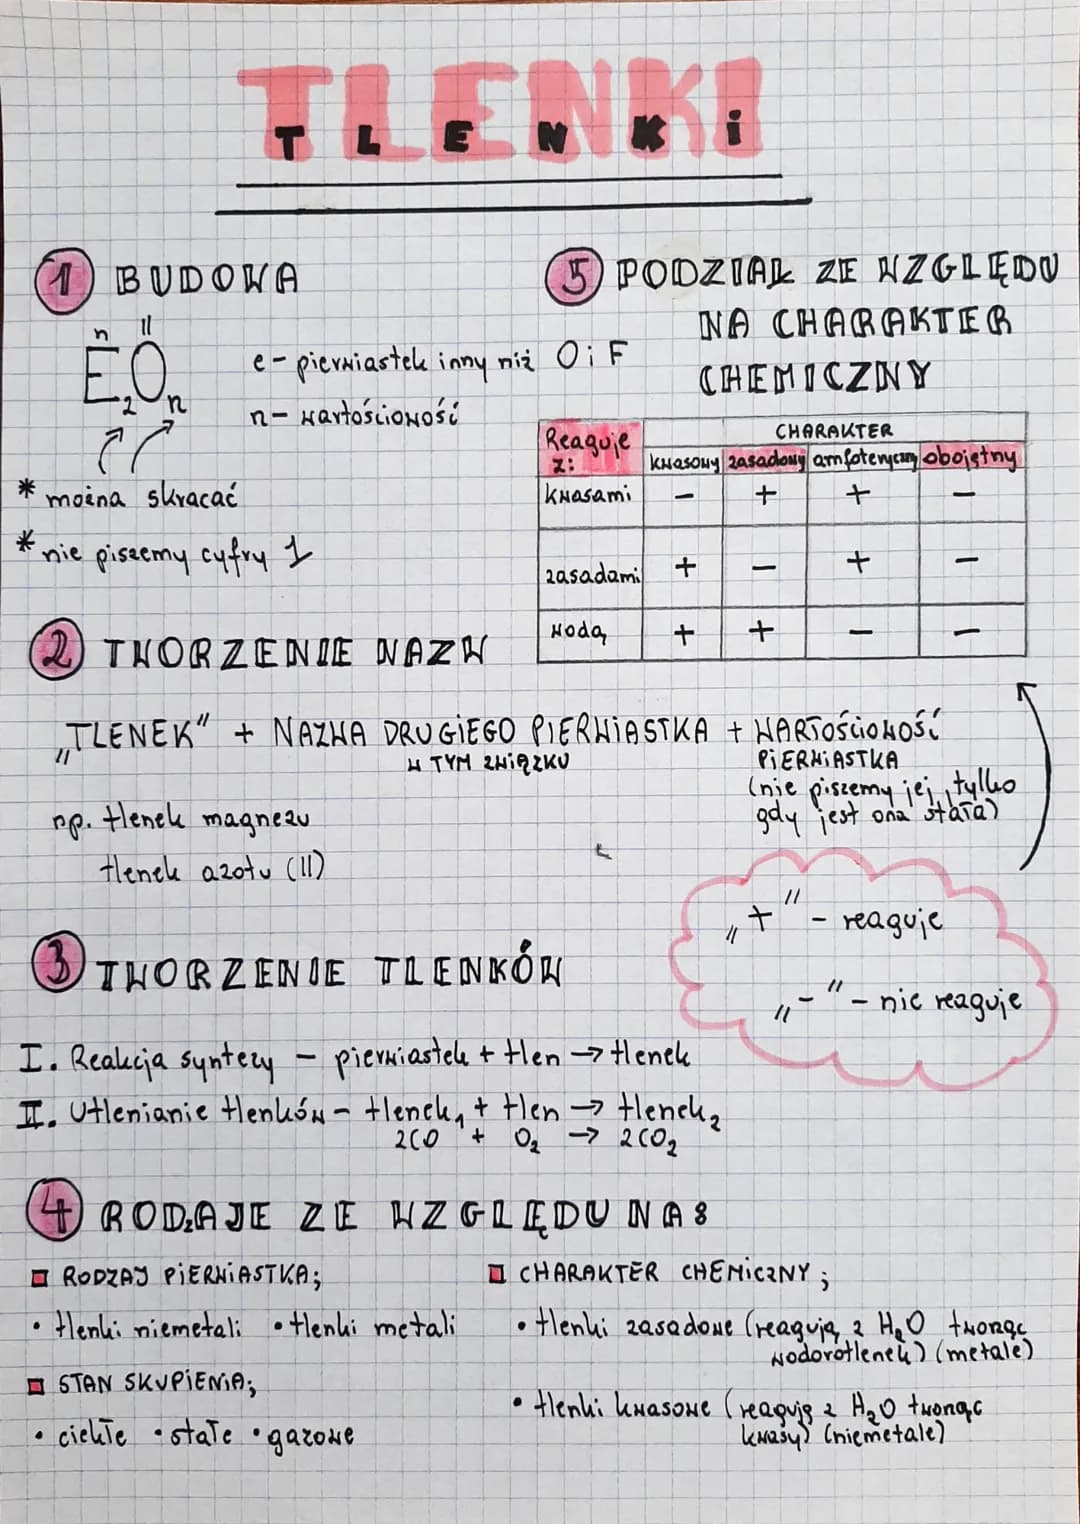 TLENKI
TLENKi
1 BUDOWA
n II
E₂Oₙ
e - pierwiastek inny niż O i F
n - wartościowość
* można skracać
* nie piszemy cyfry 1
2 TWORZENIE NAZW
„TLENEK" + NAZWA DRUGiEGO PiERWiASTKA + WARTOŚCiOWOŚĆ
W TYM ZWiĄZKU
PiERWiASTKA
(nie piszemy jej, tylko
gdy jest ona stała)
np. tlenek magnezu
tlenek azotu (II)
3 TWORZENIE TLENKÓW
I. Reakcja syntezy - pierwiastek + tlen → tlenek
II. Utlenianie tlenków - tlenek₁ + tlen → tlenek₂
2CO + O₂ → 2CO₂
4 RODZAJE ZE WZGLĘDU NA:
RODZAJ PiERWiASTKA;
• tlenki niemetali • tlenki metali
STAN SKUPiENiA;
• ciekłe • stałe • gazowe
CHARAKTER CHEMiCZNY;
• tlenki zasadowe (reagują z H₂O tworząc
wodorotlenek) (metale)
• tlenki kwasowe (reagują z H₂O tworząc
kwasy) (niemetale)
5 PODZIAŁ ZE WZGLĘDU
NA CHARAKTER
CHEMICZNY
Reaguje z: CHARAKTER
kwasowy zasadowy amfoteryczny obojętny
kwasami - + + -
zasadami + - + -
wodą + + - -
„+" - reaguje
„-" - nie reaguje